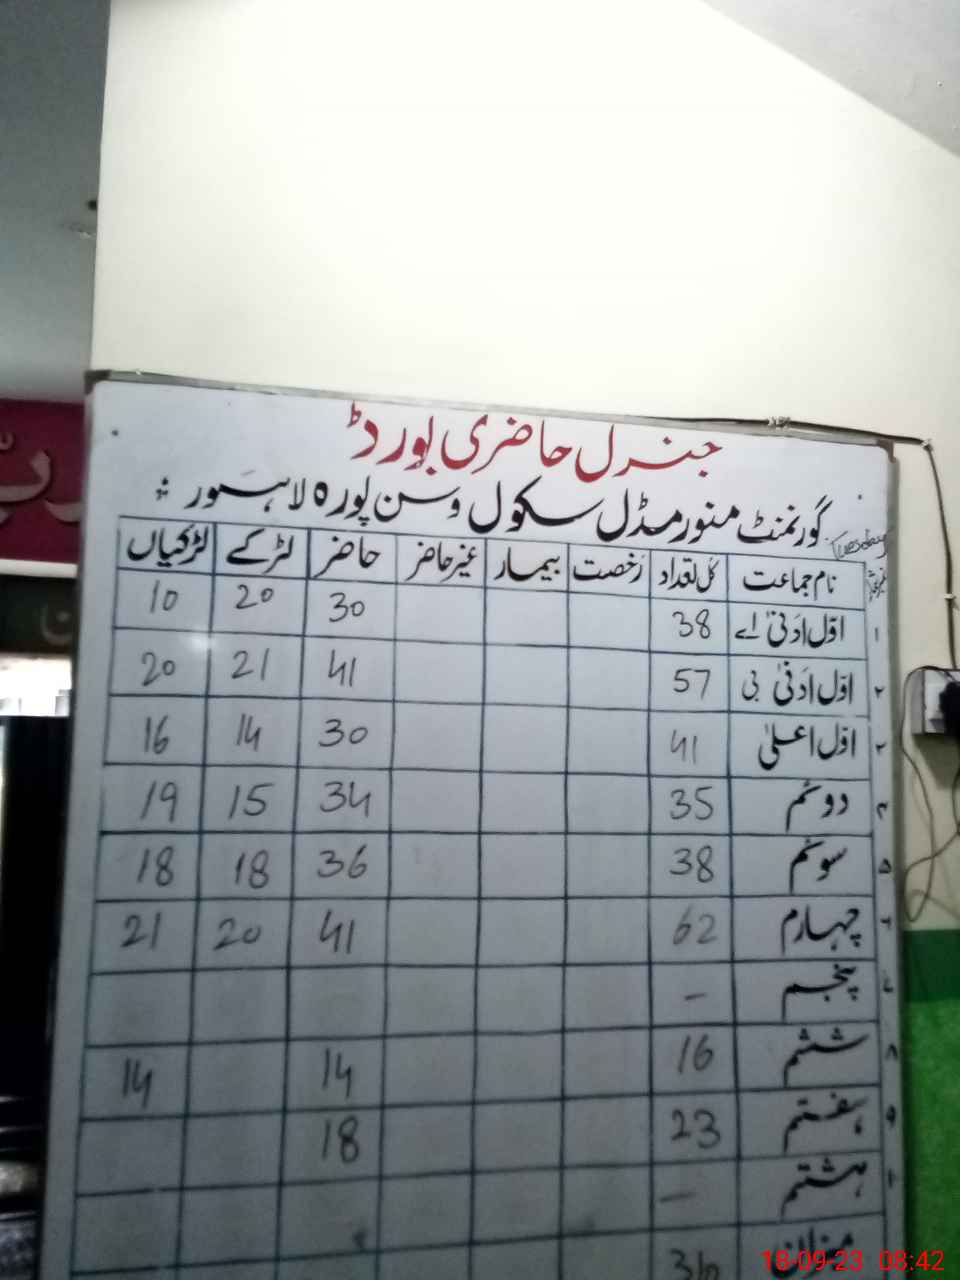 جنرل حاضری بورڈ
گورنمنٹ منور مڈل سکول وسن پورہ لاہور
Tuesday
نام جماعت کل تعداد رخصت بیمار غیر حاضر حاضر لڑکے لڑکیاں
۱ اوّل ادنیٰ اے 38 30 20 10
۲ اوّل ادنیٰ بی 57 41 21 20
۳ اوّل اعلیٰ 41 30 14 16
۴ دوئم 35 34 15 19
۵ سوئم 38 36 18 18
۶ چہارم 62 41 20 21
۷ پنجم –
۸ ششم 16 14 14
۹ ہفتم 23 18
ہشتم –
میزان
18-09-23 08:42